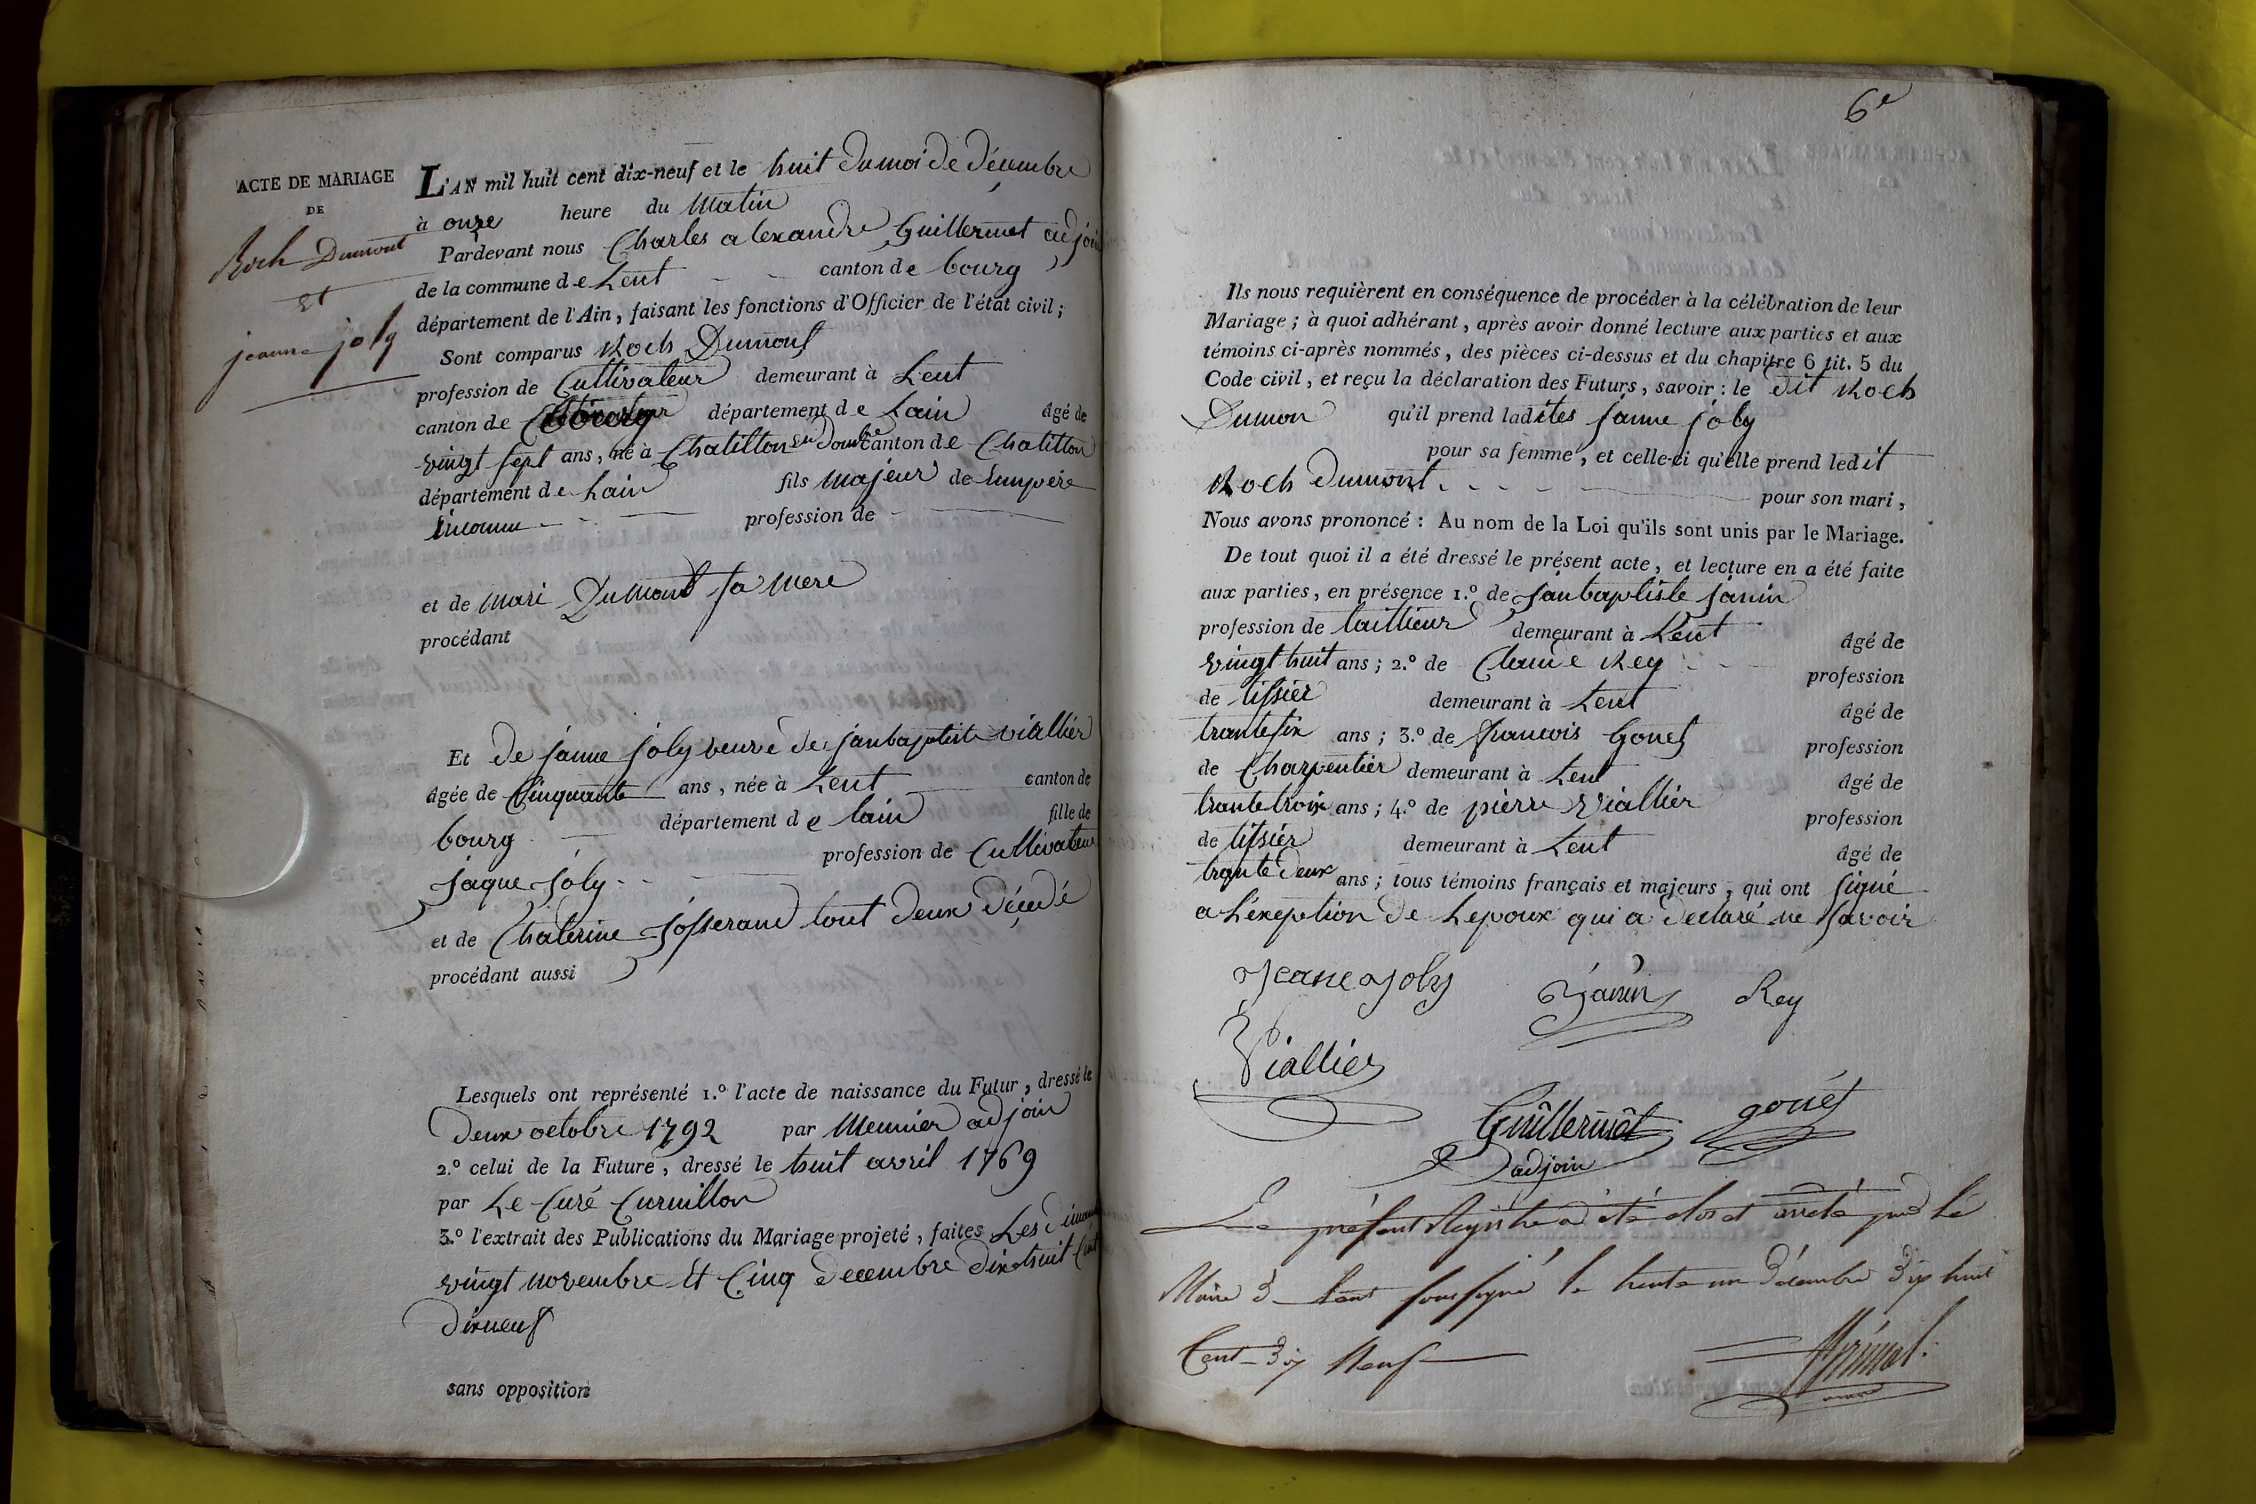 ACTE DE MARIAGE
DE
Roch Dumont
et
jeanne joly
L'AN mil huit cent dix-neuf et le huit du moi de décembre
à onze heure du Matin
Pardevant nous Charles alexandre Guillermet adjoin
de la commune de Lent canton de bourg
département de l'Ain, faisant les fonctions d'Officier de l'état civil;
Sont comparus Roch Dumont
profession de Cultivateur demeurant à Lent
canton de bourg département de Lain âgé de
vingt sept ans, né à Chatillon en Dombe canton de Chatillon
département de Lain fils Majeur de un père
inconnu profession de
et de Mari Dumont sa Mere
procédant
Et de janne joly veuve de janbaptiste viallier
âgée de Cinquante ans, née à Lent canton de
bourg département de lain fille de
jaque joly profession de Cultivateur
et de Chaterine josserand tout deux décédé
procédant aussi
Lesquels ont représenté 1.º l'acte de naissance du Futur, dressé le
deux octobre 1792 par Meunier adjoin
2.º celui de la Future, dressé le huit avril 1769
par Le Curé Curnillon
3.º l'extrait des Publications du Mariage projeté, faites Les diman
vingt novembre et Cinq decembre dix huit Cent
dixneuf
sans opposition
6e
Ils nous requièrent en conséquence de procéder à la célébration de leur
Mariage; à quoi adhérant, après avoir donné lecture aux parties et aux
témoins ci-après nommés, des pièces ci-dessus et du chapitre 6 tit. 5 du
Code civil, et reçu la déclaration des Futurs, savoir: le dit Roch
Dumon qu'il prend ladites janne joly
pour sa femme, et celle-ci qu'elle prend ledit
Roch dumont pour son mari,
Nous avons prononcé: Au nom de la Loi qu'ils sont unis par le Mariage.
De tout quoi il a été dressé le présent acte, et lecture en a été faite
aux parties, en présence 1.º de janbaptiste janin
profession de taillieur demeurant à Lent âgé de
vingt huit ans; 2.º de Claude Rey profession
de tissier demeurant à Lent âgé de
trante six ans; 3.º de francois Gonet profession
de Charpentier demeurant à Lent âgé de
trante troix ans; 4.º de pierre Viallier profession
de tissier demeurant à Lent âgé de
trante deux ans; tous témoins français et majeurs, qui ont signé
a Léxeption de Lepoux qui a declaré ne savoir
Jeane Joly Janin Rey
Viallier
Guillermet gonét
adjoin
Le présent Registre a été clos et arrété par le
Maire de Lent soussigné le trente un décembre dix huit
Cent dix Neuf